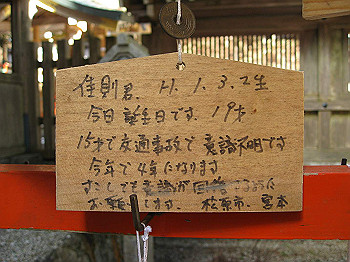 佳則君 H.1.3.2生
今日誕生日です. 19才
15才で交通事故で意識不明です
今年で4年になります.
どうしても意識が回復できるように
お願いします. 松原市. 宮本